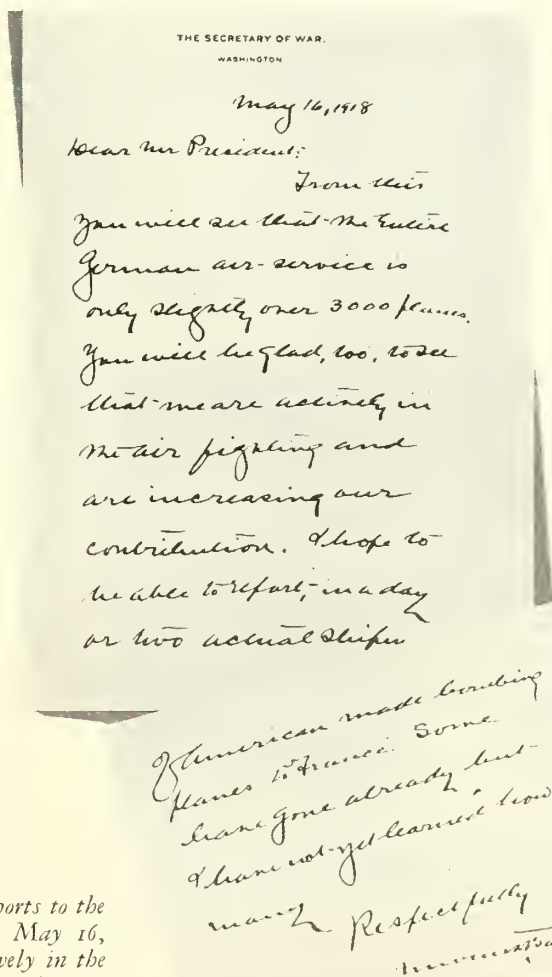 THE SECRETARY OF WAR.
WASHINGTON
May 16, 1918
Dear Mr President:
From this
you will see that the entire
German air-service is
only slightly over 3000 planes.
You will be glad, too, to see
that we are actively in
the air fighting and
are increasing our
contribution. I hope to
be able to report, in a day
or two actual
of American made bombing
planes to France. Some
have gone already but
I have not yet learned how
many
Respectfully
ports to the
May 16,
vely in the